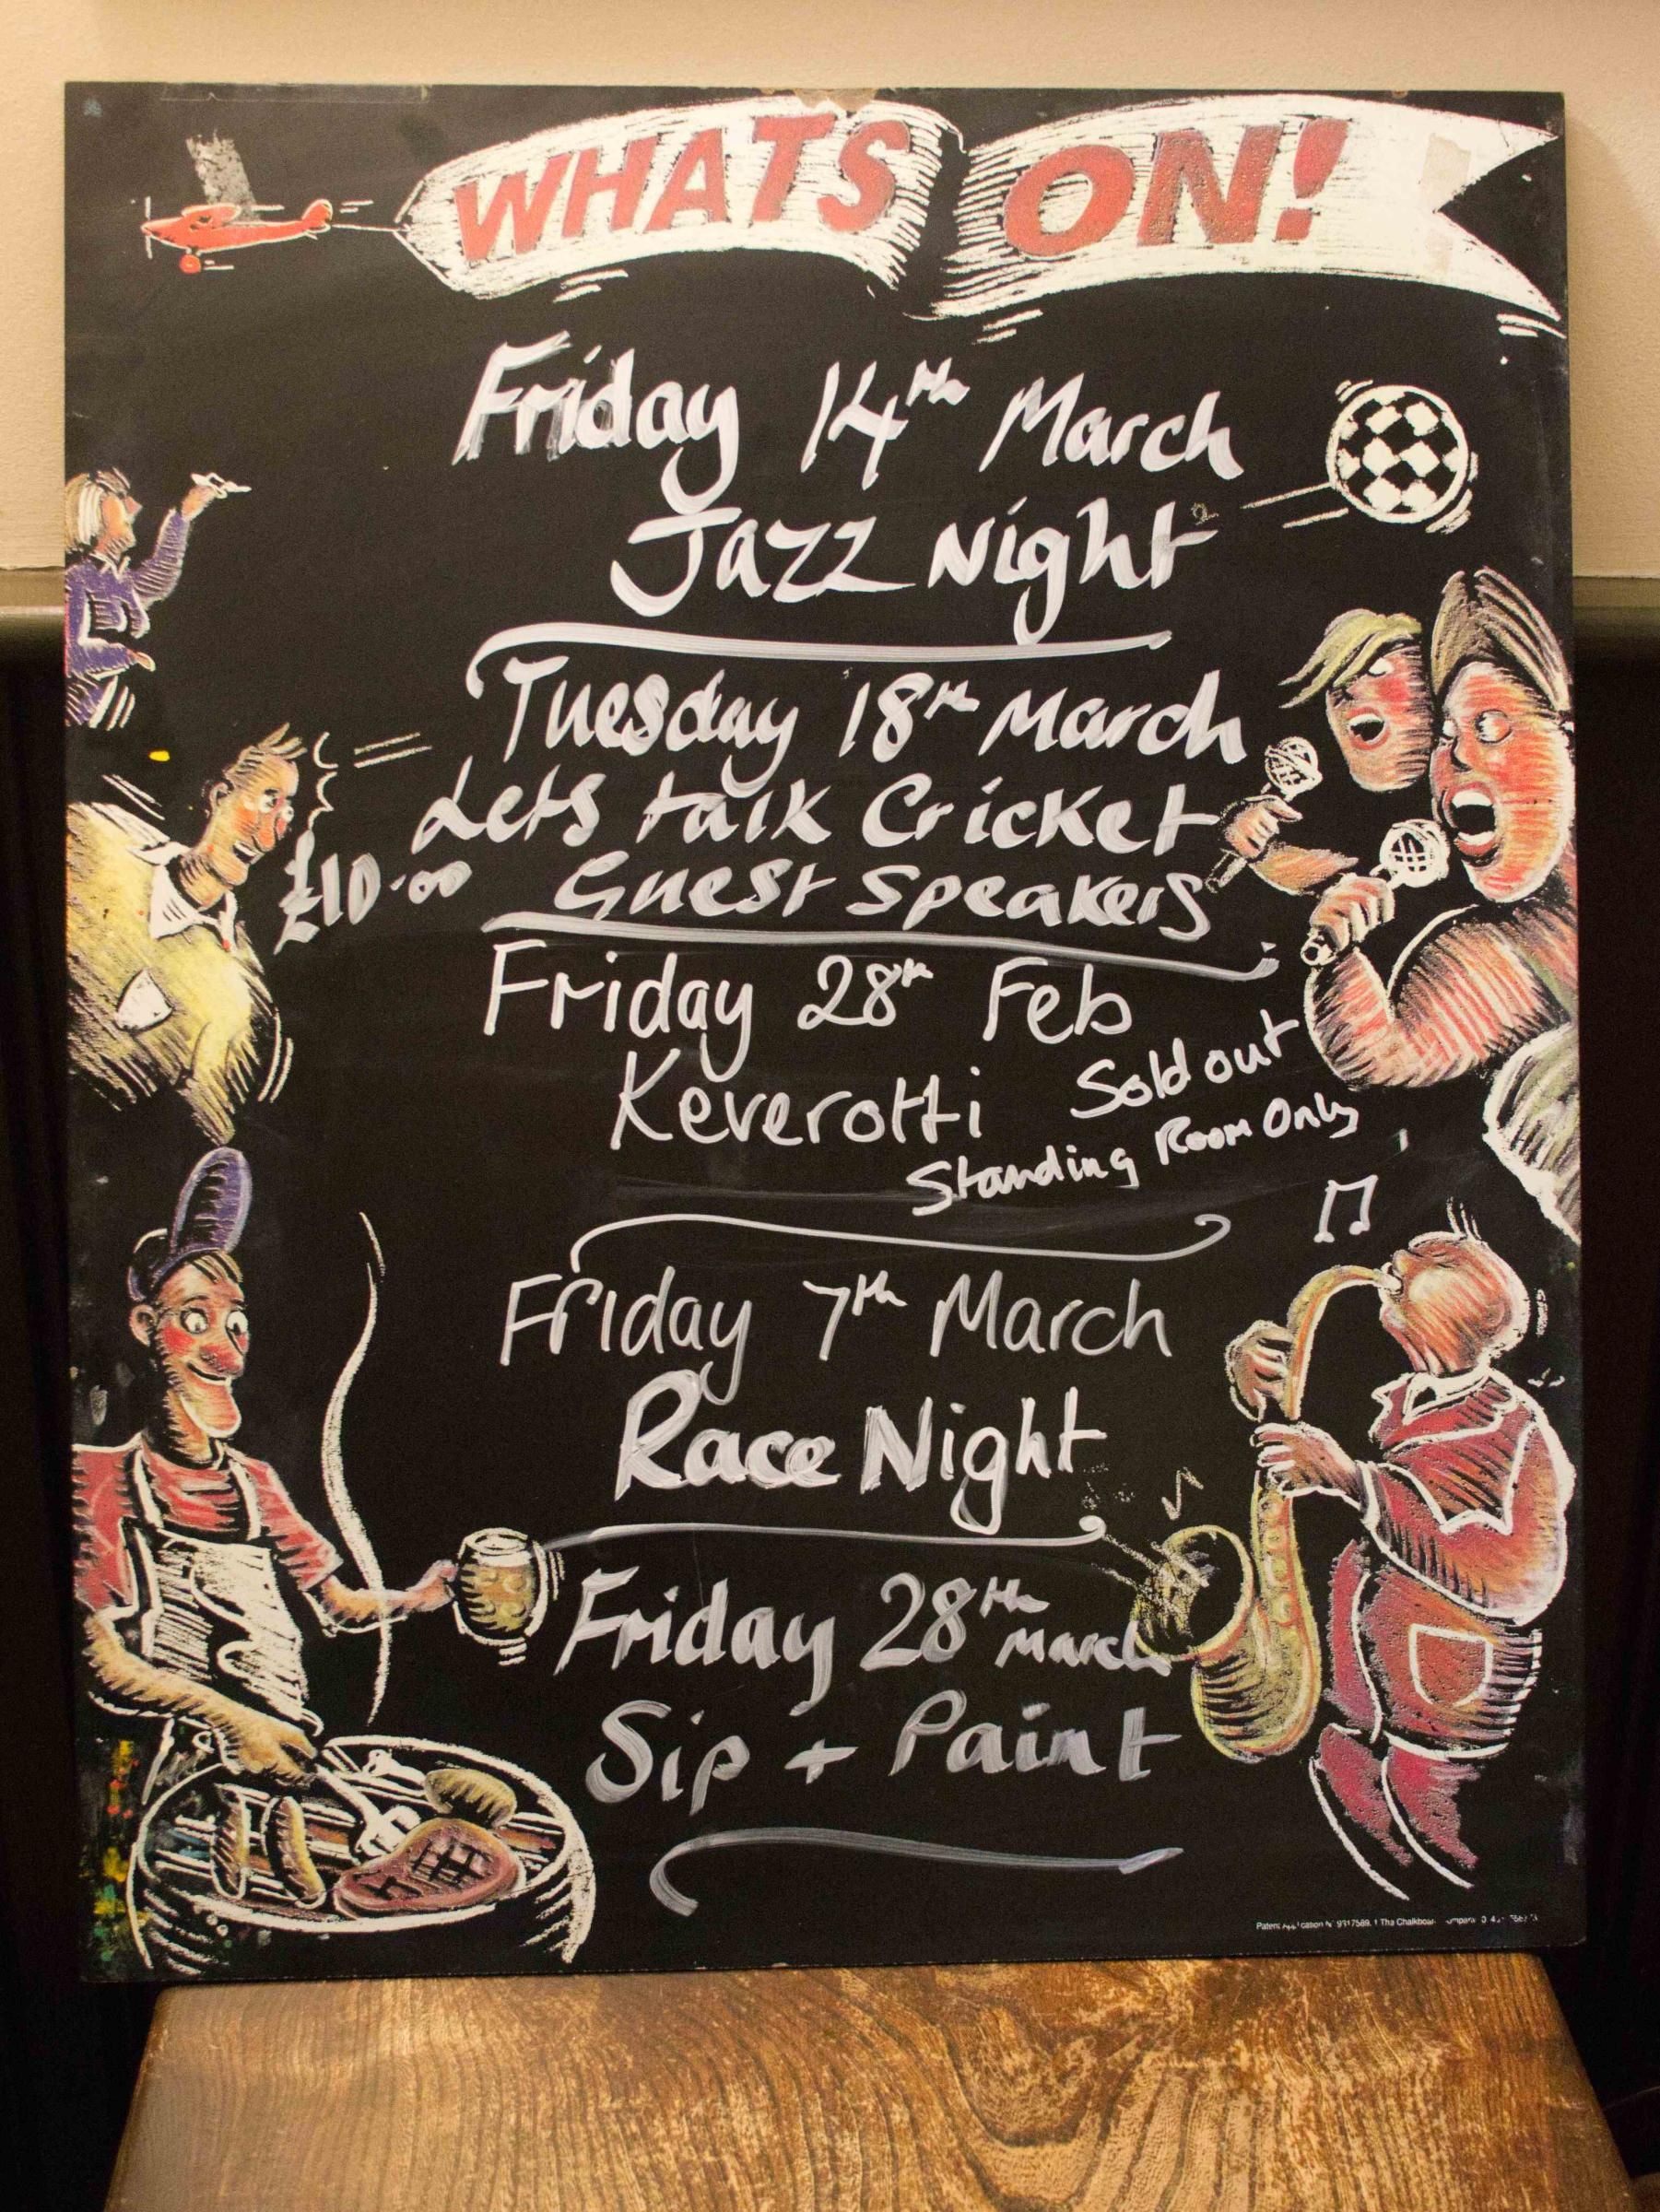 WHATS ON!
Friday 14th March
Jazz Night
Tuesday 18th March
Lets talk Cricket
£10.00 Guest Speakers
Friday 28th Feb
Keverotti Sold out
Standing Room Only
Friday 7th March
Race Night
Friday 28th March
Sip + Paint